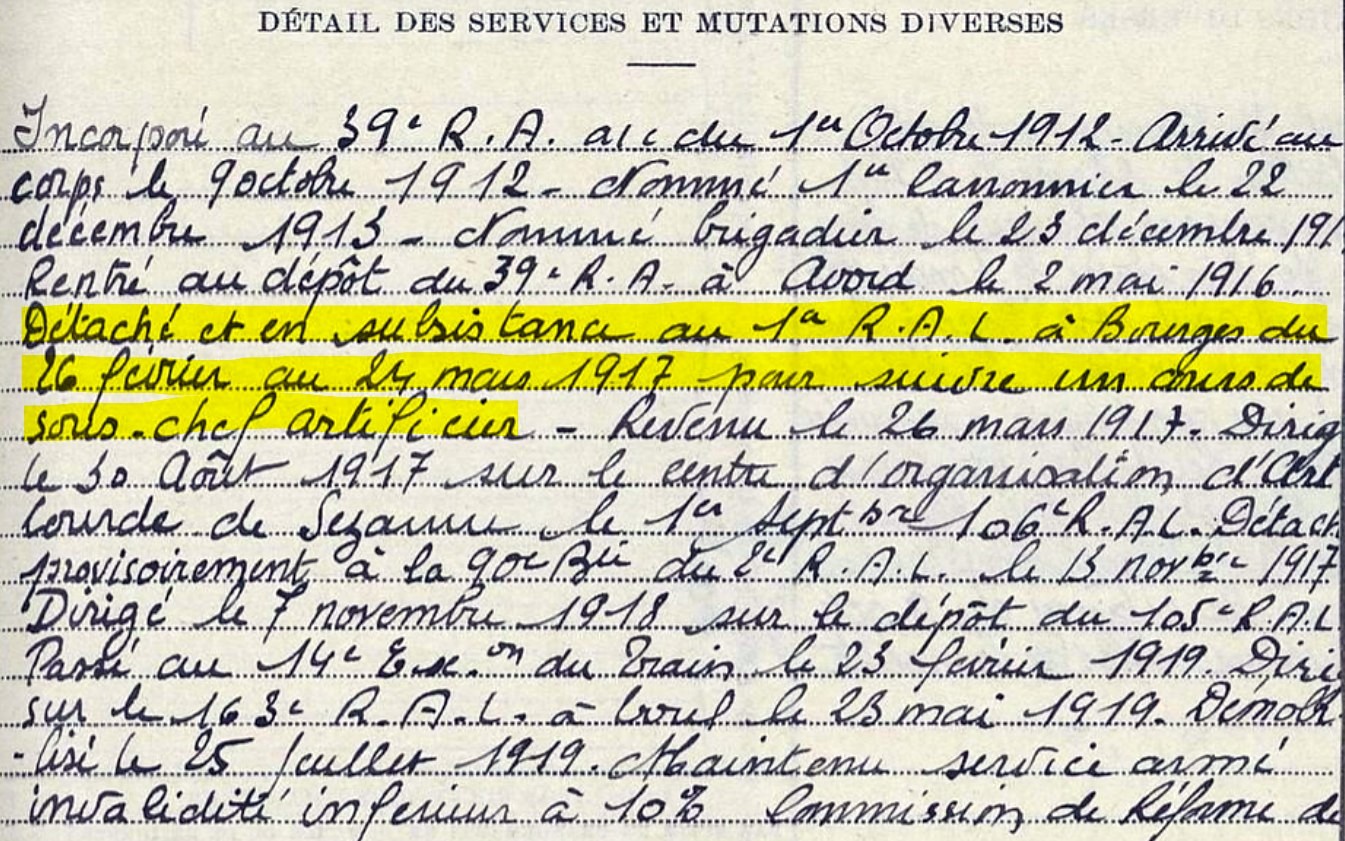 DÉTAIL DES SERVICES ET MUTATIONS DIVERSES
Incorporé au 39e R.A. a/c du 1er Octobre 1912 - Arrivé au
corps le 9 octobre 1912 - Nommé 1er Canonnier le 22
décembre 1913 - Nommé brigadier le 23 décembre 191
Rentré au dépôt du 39e R.A. à Avord le 2 mai 1916
Détaché et en subsistance au 1er R.A.L. à Bourges du
26 février au 24 mars 1917 pour suivre un cours de
sous-chef artificier - Revenu le 26 mars 1917. Dirig
le 30 Août 1917 sur le centre d'organisation d'Art
Lourde de Sezanne le 1er Septbre 106e R.A.L. Détach
provisoirement à la 90e Bie du 2e R.A.L. le 13 novbre 1917
Dirigé le 7 novembre 1918 sur le dépôt du 105e R.A.L
Passé au 14e Esc.on du Train le 23 février 1919. Diri
sur le 163e R.A.L. à Toul le 23 mai 1919. Démob
-lisé le 25 Juillet 1919. Maintenu service armé
invalidité inférieur à 10% Commission de Réforme de